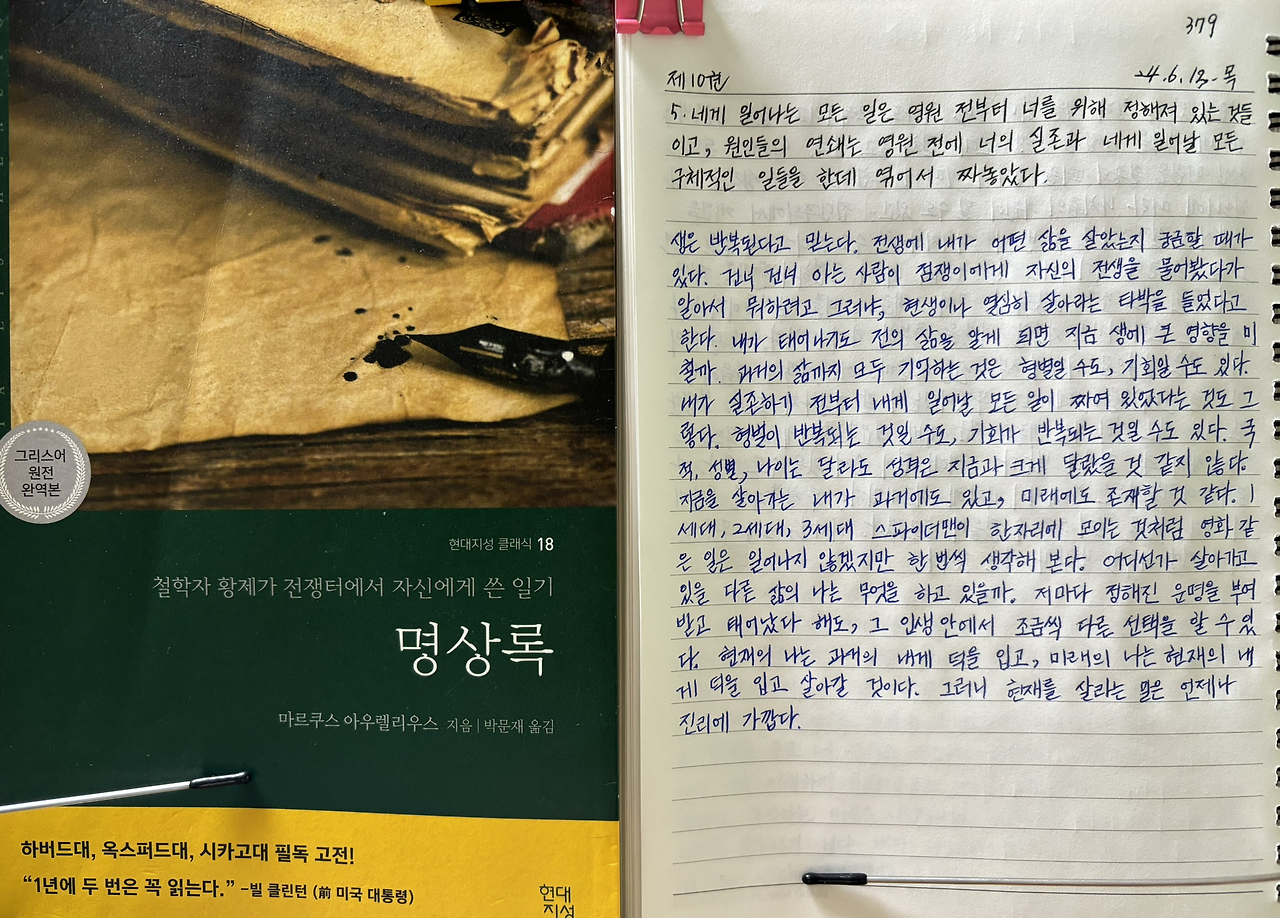 그리스어
원전
완역본
현대지성 클래식 18
철학자 황제가 전쟁터에서 자신에게 쓴 일기
명상록
마르쿠스 아우렐리우스 지음 | 박문재 옮김
하버드대, 옥스퍼드대, 시카고대 필독 고전!
“1년에 두 번은 꼭 읽는다.” -빌 클린턴 (前 미국 대통령)
현대
지성
379
제10권 24.6.13.목
5. 네게 일어나는 모든 일은 영원 전부터 너를 위해 정해져 있는 것들
이고, 원인들의 연쇄는 영원 전에 너의 실존과 네게 일어날 모든
구체적인 일들을 한데 엮어서 짜놓았다.
생은 반복된다고 믿는다. 전생에 내가 어떤 삶을 살았는지 궁금할 때가
있다. 건너 건너 아는 사람이 점쟁이에게 자신의 전생을 물어봤다가
알아서 뭐하려고 그러냐, 현생이나 열심히 살아라는 타박을 들었다고
한다. 내가 태어나기도 전의 삶을 알게 되면 지금 생에 큰 영향을 미
칠까. 과거의 삶까지 모두 기억하는 것은 형벌일 수도, 기회일 수도 있다.
내가 실존하기 전부터 내게 일어날 모든 일이 짜여 있었다는 것도 그
렇다. 형벌이 반복되는 것일 수도, 기회가 반복되는 것일 수도 있다. 국
적, 성별, 나이는 달라도 성격은 지금과 크게 달랐을 것 같지 않다.
지금을 살아가는 내가 과거에도 있고, 미래에도 존재할 것 같다. 1
세대, 2세대, 3세대 스파이더맨이 한자리에 모이는 것처럼 영화 같
은 일은 일어나지 않겠지만 한 번씩 생각해 본다. 어디선가 살아가고
있을 다른 삶의 나는 무엇을 하고 있을까. 저마다 정해진 운명을 부여
받고 태어났다 해도, 그 인생 안에서 조금씩 다른 선택을 할 수 있
다. 현재의 나는 과거의 내게 덕을 입고, 미래의 나는 현재의 내
게 덕을 입고 살아갈 것이다. 그러니 현재를 살라는 말은 언제나
진리에 가깝다.